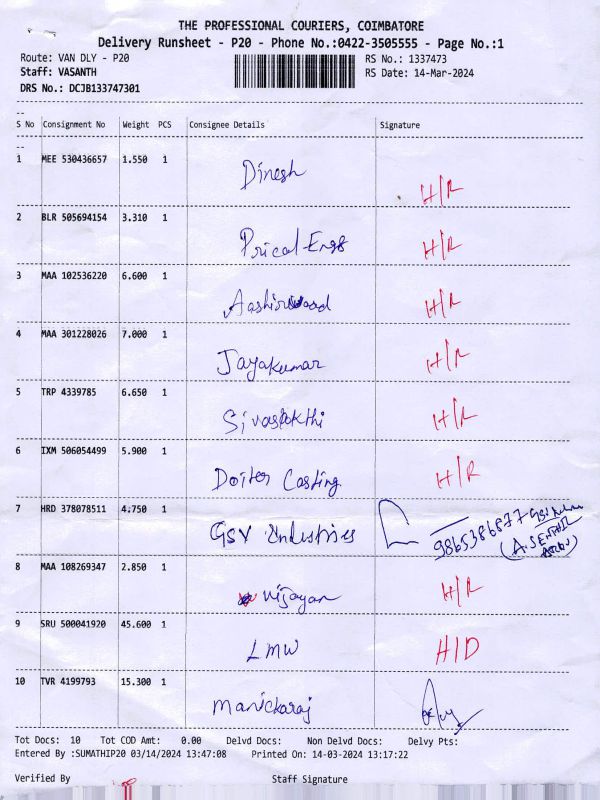 THE PROFESSIONAL COURIERS, COIMBATORE
Delivery Runsheet - P20 - Phone No.:0422-3505555 - Page No.:1
Route: VAN DLY - P20 RS No.: 1337473
Staff: VASANTH RS Date: 14-Mar-2024
DRS No.: DCJB133747301
--
S No Consignment No Weight PCS Consignee Details Signature
--
1 MEE 530436657 1.550 1 Dinesh H/R
2 BLR 505694154 3.310 1 Prical Engg H/R
3 MAA 102536220 6.600 1 H/R
4 MAA 301228026 7.000 1 Jayakumar H/R
5 TRP 4339785 6.650 1 Sivasakthi H/R
6 IXM 506054499 5.900 1 Doiter Casting H/R
7 HRD 378078511 4.750 1 GSV Industries 9865386877
(A. SENTHIL
8 MAA 108269347 2.850 1 Vijayan H/R
9 SRU 500041920 45.600 1 LMW H/D
10 TVR 4199793 15.300 1 Manickaraj
Tot Docs: 10 Tot COD Amt: 0.00 Delvd Docs: Non Delvd Docs: Delvy Pts:
Entered By :SUMATHIP20 03/14/2024 13:47:08 Printed On: 14-03-2024 13:17:22
Verified By Staff Signature